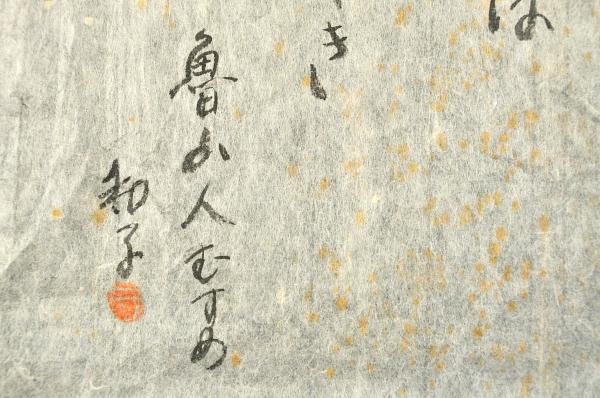 は
きし
魯山人むすめ
和子